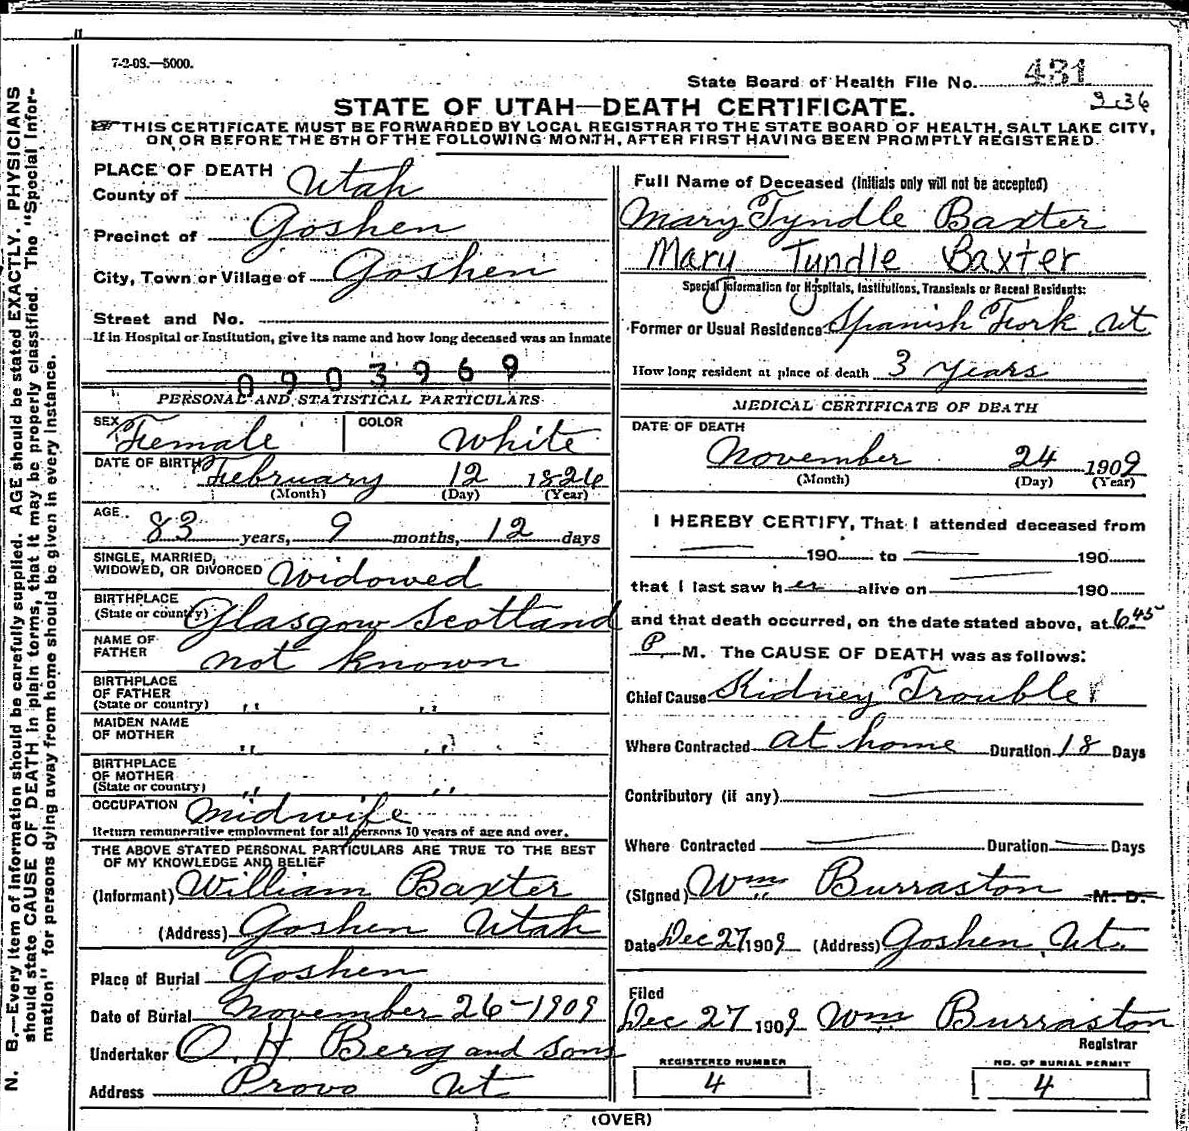 7-2-08.—5000.
State Board of Health File No. 431
STATE OF UTAH—DEATH CERTIFICATE.
2136
☞THIS CERTIFICATE MUST BE FORWARDED BY LOCAL REGISTRAR TO THE STATE BOARD OF HEALTH, SALT LAKE CITY,
ON OR BEFORE THE 5TH OF THE FOLLOWING MONTH, AFTER FIRST HAVING BEEN PROMPTLY REGISTERED.
PLACE OF DEATH
County of Utah
Precinct of Goshen
City, Town or Village of Goshen
Street and No.
If in Hospital or Institution, give its name and how long deceased was an inmate
0903969
PERSONAL AND STATISTICAL PARTICULARS
SEX Female COLOR White
DATE OF BIRTH February 12 1826
(Month) (Day) (Year)
AGE 83 years, 9 months, 12 days
SINGLE, MARRIED,
WIDOWED, OR DIVORCED Widowed
BIRTHPLACE
(State or country) Glasgow Scotland
NAME OF
FATHER not known
BIRTHPLACE
OF FATHER
(State or country) " "
MAIDEN NAME
OF MOTHER " "
BIRTHPLACE
OF MOTHER
(State or country) " "
OCCUPATION Midwife
Return remunerative employment for all persons 10 years of age and over.
THE ABOVE STATED PERSONAL PARTICULARS ARE TRUE TO THE BEST
OF MY KNOWLEDGE AND BELIEF
(Informant) William Baxter
(Address) Goshen Utah
Place of Burial Goshen
Date of Burial November 26-1909
Undertaker O. H. Berg and Sons
Address Provo Ut
Full Name of Deceased (Initials only will not be accepted)
Mary Tyndle Baxter
Mary Tyndle Baxter
Special Information for Hospitals, Institutions, Transients or Recent Residents:
Former or Usual Residence Spanish Fork Ut
How long resident at place of death 3 years
MEDICAL CERTIFICATE OF DEATH
DATE OF DEATH
November 24 1909
(Month) (Day) (Year)
I HEREBY CERTIFY, That I attended deceased from
— 190 to — 190
that I last saw her alive on — 190
and that death occurred, on the date stated above, at 6 45
P. M. The CAUSE OF DEATH was as follows:
Chief Cause Kidney Trouble
Where Contracted at home Duration 18 Days
Contributory (if any) —
Where Contracted — Duration — Days
(Signed) Wm Burraston M. D.
Date Dec 27 1909 (Address) Goshen Ut.
Filed
Dec 27 1909 Wm Burraston
Registrar
REGISTERED NUMBER
4
NO. OF BURIAL PERMIT
4
(OVER)
N. B.—Every item of information should be carefully supplied. AGE should be stated EXACTLY. PHYSICIANS
should state CAUSE OF DEATH in plain terms, that it may be properly classified. The "Special Infor-
mation" for persons dying away from home should be given in every instance.